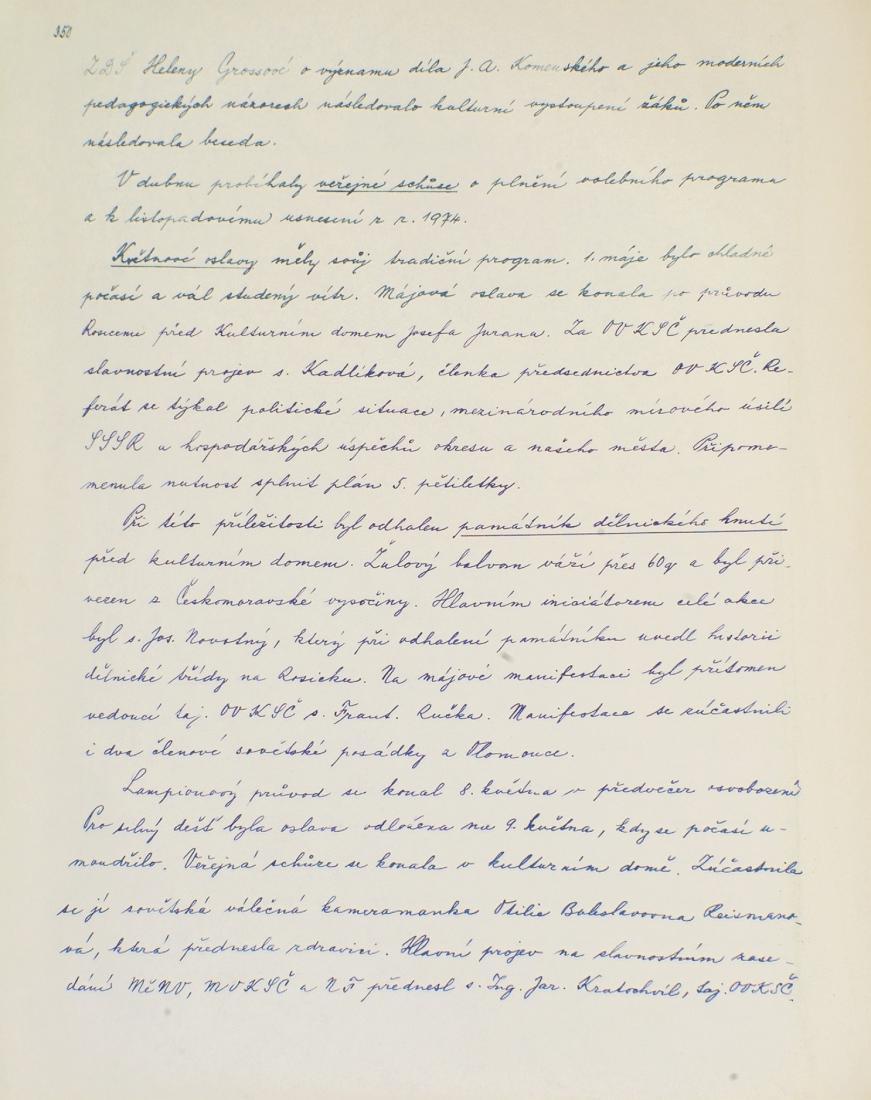 350
ZDŠ Heleny Grossové o významu díla J. A. Komenského a jeho moderních
pedagogických názorech následovalo kulturní vystoupení žáků. Po něm
následovala beseda.
V dubnu probíhaly veřejné schůze o plnění volebního programu
a k listopadovému usnesení z r. 1974.
Květnové oslavy měly svůj tradiční program. 1. máje bylo chladné
počasí a vál studený vítr. Májová oslava se konala po průvodu
Rosicemi před Kulturním domem Josefa Jurana. Za OV KSČ přednesla
slavnostní projev s. Kadlíková, členka předsednictva OV KSČ. Re-
ferát se týkal politické situace, mezinárodního mírového úsilí
SSSR a hospodářských úspěchů okresu a našeho města. Připomo-
menula nutnost splnit plán 5. pětiletky.
Při této příležitosti byl odhalen památník dělnického hnutí
před kulturním domem. Žulový balvan váží přes 60 q a byl při-
vezen z Českomoravské vysočiny. Hlavním iniciátorem celé akce
byl s. Jos. Novotný, který při odhalení památníku uvedl historii
dělnické třídy na Rosicku. Na májové manifestaci byl přítomen
vedoucí taj. OV KSČ s. Frant. Ručka. Manifestace se zúčastnili
i dva členové sovětské posádky z Olomouce.
Lampionový průvod se konal 8. května v předvečer osvobození
Pro silný déšť byla oslava odložena na 9. května, kdy se počasí u-
moudřilo. Veřejná schůze se konala v kulturním domě. Zúčastnila
se jí sovětská válečná kameramanka Otilie Boleslavovna Reismano-
vá, která přednesla zdravici. Hlavní projev na slavnostním zase-
dání MěNV, MV KSČ a NF přednesl s. Ing. Jar. Kratochvíl, taj. OV KSČ.